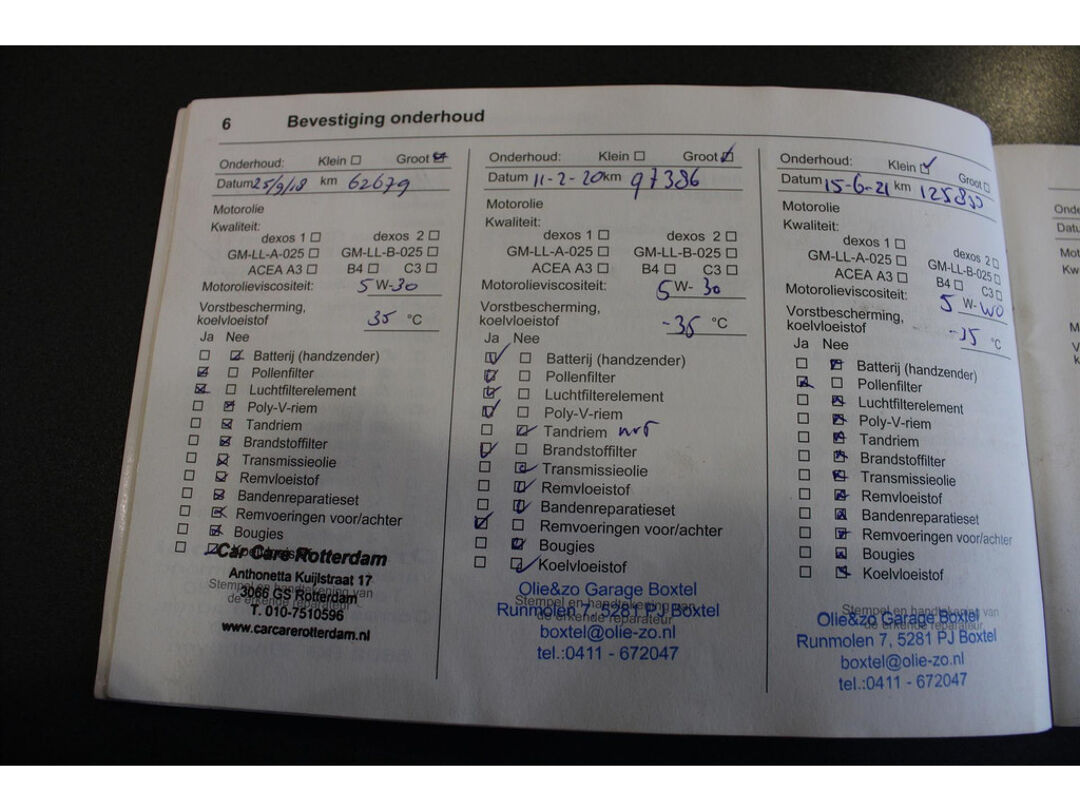 6 Bevestiging onderhoud
Onderhoud: Klein Groot
Datum 25/9/18 km 62679
Motorolie
Kwaliteit:
dexos 1 dexos 2
GM-LL-A-025 GM-LL-B-025
ACEA A3 B4 C3
Motorolieviscositeit: 5 W-30
Vorstbescherming,
koelvloeistof 35 °C
Ja Nee
Batterij (handzender)
Pollenfilter
Luchtfilterelement
Poly-V-riem
Tandriem
Brandstoffilter
Transmissieolie
Remvloeistof
Bandenreparatieset
Remvoeringen voor/achter
Bougies
Car Care Rotterdam
Anthonetta Kuijlstraat 17
Stempel en handtekening van
3066 GS Rotterdam
de erkende reparateur
T. 010-7510596
www.carcarerotterdam.nl
Onderhoud: Klein Groot
Datum 11-2-20 km 97386
Motorolie
Kwaliteit:
dexos 1 dexos 2
GM-LL-A-025 GM-LL-B-025
ACEA A3 B4 C3
Motorolieviscositeit: 5 W-30
Vorstbescherming,
koelvloeistof -36 °C
Ja Nee
Batterij (handzender)
Pollenfilter
Luchtfilterelement
Poly-V-riem
Tandriem
Brandstoffilter
Transmissieolie
Remvloeistof
Bandenreparatieset
Remvoeringen voor/achter
Bougies
Koelvloeistof
Olie&zo Garage Boxtel
Stempel en handtekening van
Runmolen 7, 5281 PJ Boxtel
de erkende reparateur
boxtel@olie-zo.nl
tel.:0411 - 672047
Onderhoud: Klein Groot
Datum 15-6-21 km
Motorolie
Kwaliteit:
dexos 1 dexos 2
GM-LL-A-025 GM-LL-B-025
ACEA A3 B4 C3
Motorolieviscositeit: 5 W-
Vorstbescherming,
koelvloeistof °C
Ja Nee
Batterij (handzender)
Pollenfilter
Luchtfilterelement
Poly-V-riem
Tandriem
Brandstoffilter
Transmissieolie
Remvloeistof
Bandenreparatieset
Remvoeringen voor/achter
Bougies
Koelvloeistof
Stempel en handtekening van
Olie&zo Garage Boxtel
de erkende reparateur
Runmolen 7, 5281 PJ Boxtel
boxtel@olie-zo.nl
tel.:0411 - 672047